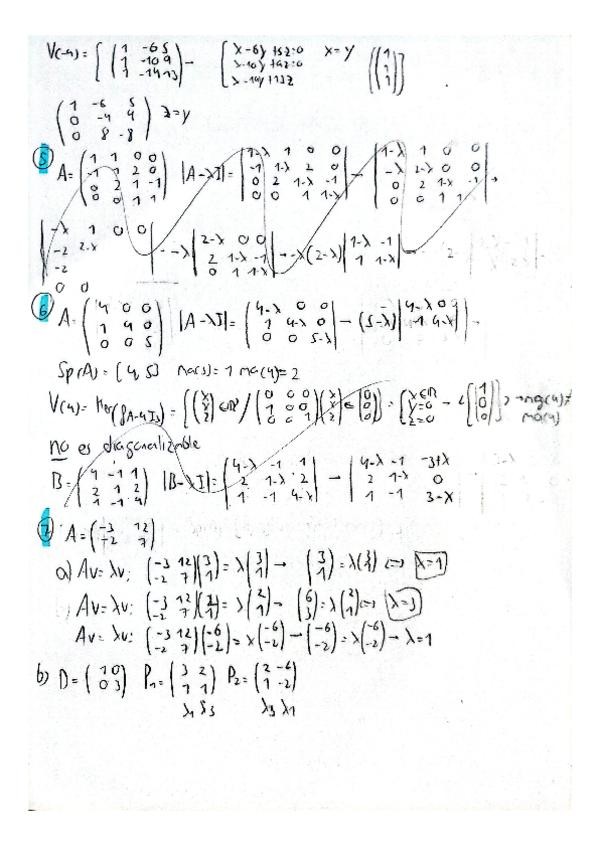 V(-4) = { ( 1 -6 5 ; 1 -10 9 ; 1 -14 13 ) → { x-6y+5z=0 x=y
( 1 -6 5 ; 0 -4 4 ; 0 8 -8 ) z=y
5 A = ( 1 1 0 0 ; -1 1 2 0 ; 0 2 1 -1 ; 0 0 1 1 ) |A-λI| = | 1-λ 1 0 0 ; -1 1-λ 2 0 ; 0 2 1-λ -1 ; 0 0 1 1-λ | → | 1-λ 1 0 0 ; -λ 2-λ 0 0 ; 0 2 1-λ -1 ; 0 0 1 1 | →
| -λ 1 0 0 ; -2 2-λ ; -2 ; 0 0 | → -λ | 2-λ 0 0 ; 2 1-λ -1 ; 0 1 1-λ | → -λ(2-λ) | 1-λ -1 ; 1 1-λ | →
6 A = ( 4 0 0 ; 1 4 0 ; 0 0 5 ) |A-λI| = ( 4-λ 0 0 ; 1 4-λ 0 ; 0 0 5-λ ) → (5-λ) | 4-λ 0 ; 1 4-λ | →
Sp(A) = {4,5} ma(5)=1 ma(4)=2
V(4) = Ker(f_A-4I_3) = { ( x ; y ; z ) ∈ ℝ³ / ( 0 0 0 ; 1 0 0 ; 0 0 1 ) ( x ; y ; z ) = ( 0 ; 0 ; 0 ) } = { x∈ℝ ; y=0 ; z=0 → < { ( 1 ; 0 ; 0 ) } > → mg(4)≠ ma(4)
no es diagonalizable
B = ( 4 -1 1 ; 2 1 2 ; 1 -1 4 ) |B-λI| = | 4-λ -1 1 ; 2 1-λ 2 ; 1 -1 4-λ | → | 4-λ -1 -3+λ ; 2 1-λ 0 ; 1 -1 3-λ |
7 A = ( -3 12 ; -2 7 )
a) Av=λv; ( -3 12 ; -2 7 ) ( 3 ; 1 ) = λ ( 3 ; 1 ) → ( 3 ; 1 ) = λ ( 3 ; 1 ) ⟺ λ=1
Av=λv; ( -3 12 ; -2 7 ) ( 2 ; 1 ) = λ ( 2 ; 1 ) → ( 6 ; 3 ) = λ ( 2 ; 1 ) ⟺ λ=3
Av=λv; ( -3 12 ; -2 7 ) ( -6 ; -2 ) = λ ( -6 ; -2 ) → ( -6 ; -2 ) = λ ( -6 ; -2 ) → λ=1
b) D = ( 1 0 ; 0 3 ) P₁ = ( 3 2 ; 1 1 ) P₂ = ( 2 -6 ; 1 -2 )
λ₁ λ₃ λ₃ λ₁